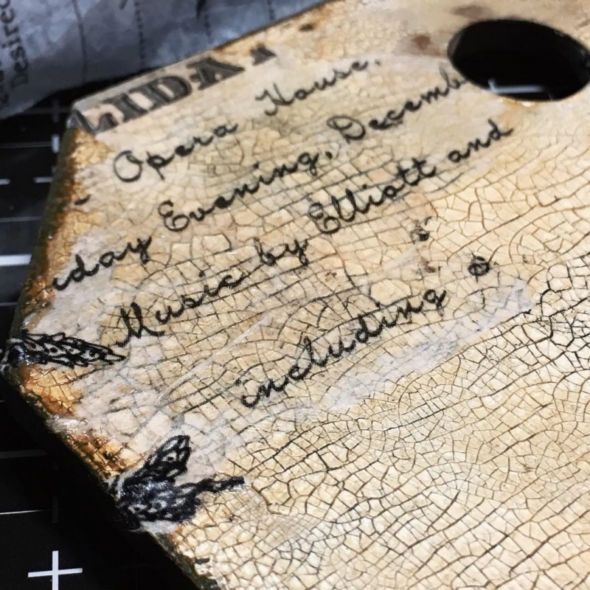 LIDA
Opera House,
day Evening, Decemb
Music by Elliott and
including $
Desired